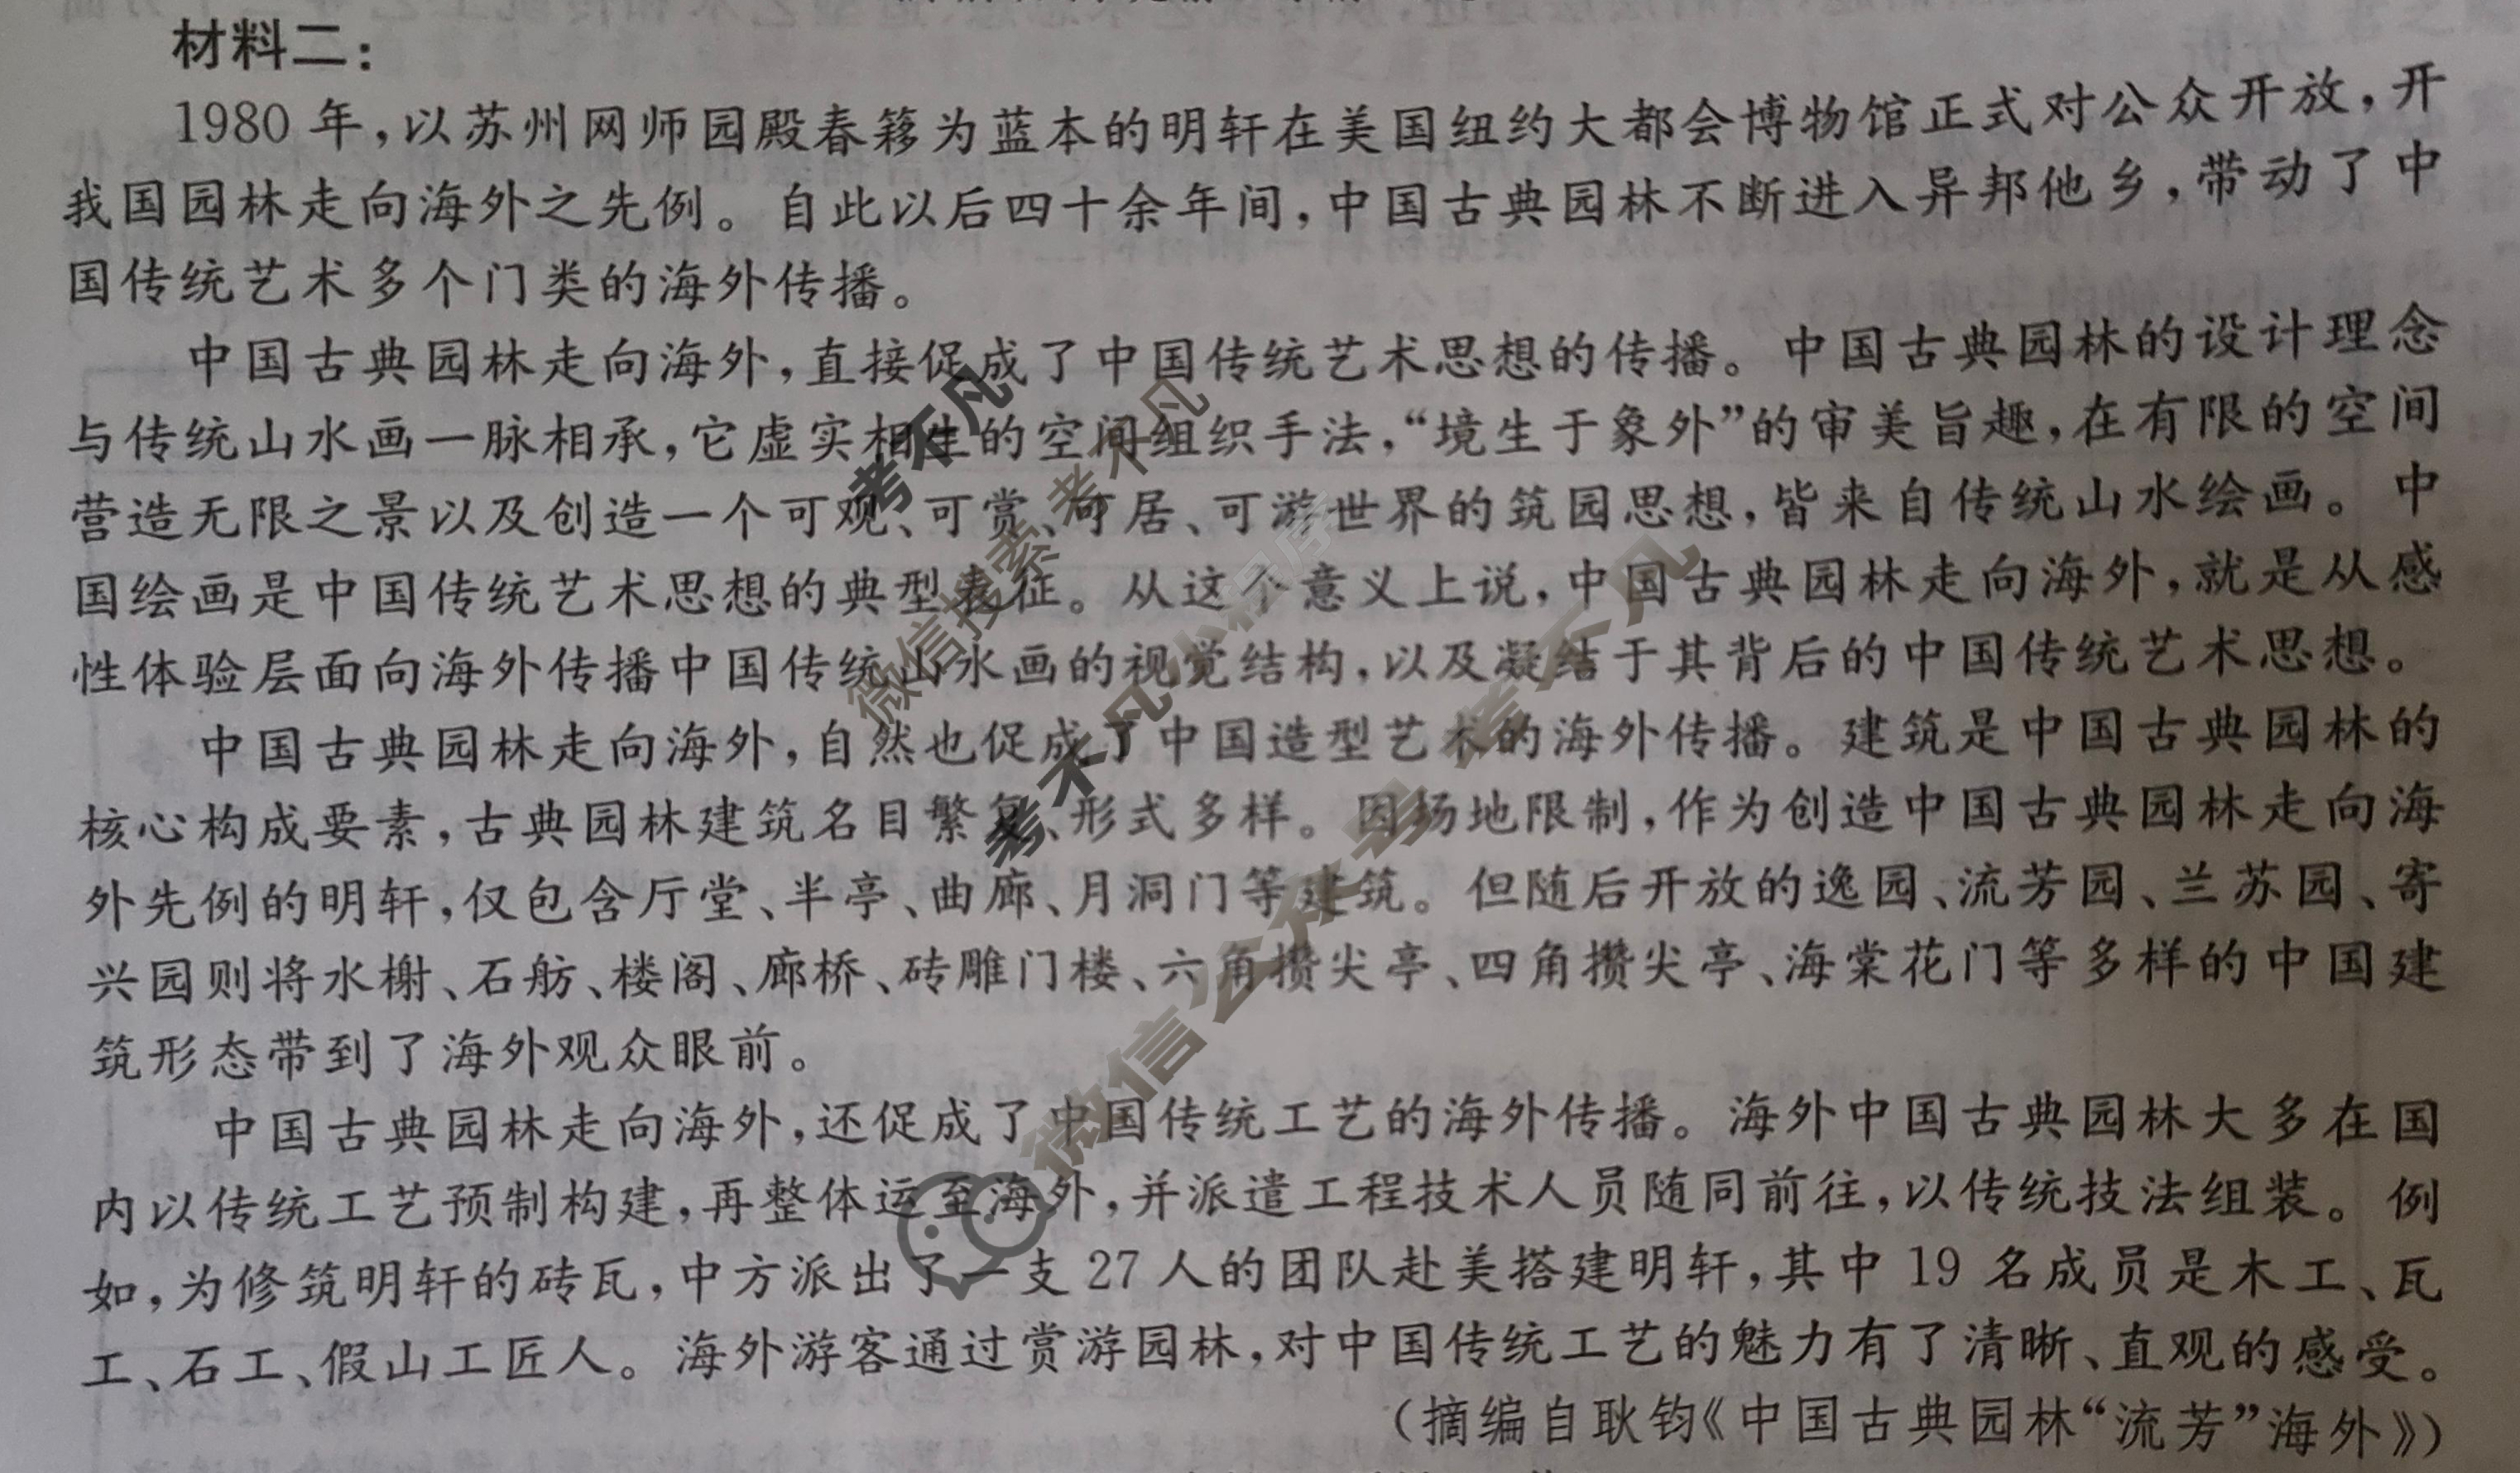 材料二：
1980 年，以苏州网师园殿春簃为蓝本的明轩在美国纽约大都会博物馆正式对公众开放，开
我国园林走向海外之先例。自此以后四十余年间，中国古典园林不断进入异邦他乡，带动了中
国传统艺术多个门类的海外传播。
中国古典园林走向海外，直接促成了中国传统艺术思想的传播。中国古典园林的设计理念
与传统山水画一脉相承，它虚实相生的空间组织手法，“境生于象外”的审美旨趣，在有限的空间
营造无限之景以及创造一个可观、可赏、可居、可游世界的筑园思想，皆来自传统山水绘画。中
国绘画是中国传统艺术思想的典型表征。从这个意义上说，中国古典园林走向海外，就是从感
性体验层面向海外传播中国传统山水画的视觉结构，以及凝结于其背后的中国传统艺术思想。
中国古典园林走向海外，自然也促成了中国造型艺术的海外传播。建筑是中国古典园林的
核心构成要素，古典园林建筑名目繁复、形式多样。因场地限制，作为创造中国古典园林走向海
外先例的明轩，仅包含厅堂、半亭、曲廊、月洞门等建筑。但随后开放的逸园、流芳园、兰苏园、寄
兴园则将水榭、石舫、楼阁、廊桥、砖雕门楼、六角攒尖亭、四角攒尖亭、海棠花门等多样的中国建
筑形态带到了海外观众眼前。
中国古典园林走向海外，还促成了中国传统工艺的海外传播。海外中国古典园林大多在国
内以传统工艺预制构建，再整体运至海外，并派遣工程技术人员随同前往，以传统技法组装。例
如，为修筑明轩的砖瓦，中方派出了一支 27 人的团队赴美搭建明轩，其中 19 名成员是木工、瓦
工、石工、假山工匠人。海外游客通过赏游园林，对中国传统工艺的魅力有了清晰、直观的感受。
（摘编自耿钧《中国古典园林“流芳”海外》）
考不凡
微信搜索考不凡
考不凡小程序
微信公众号 考不凡